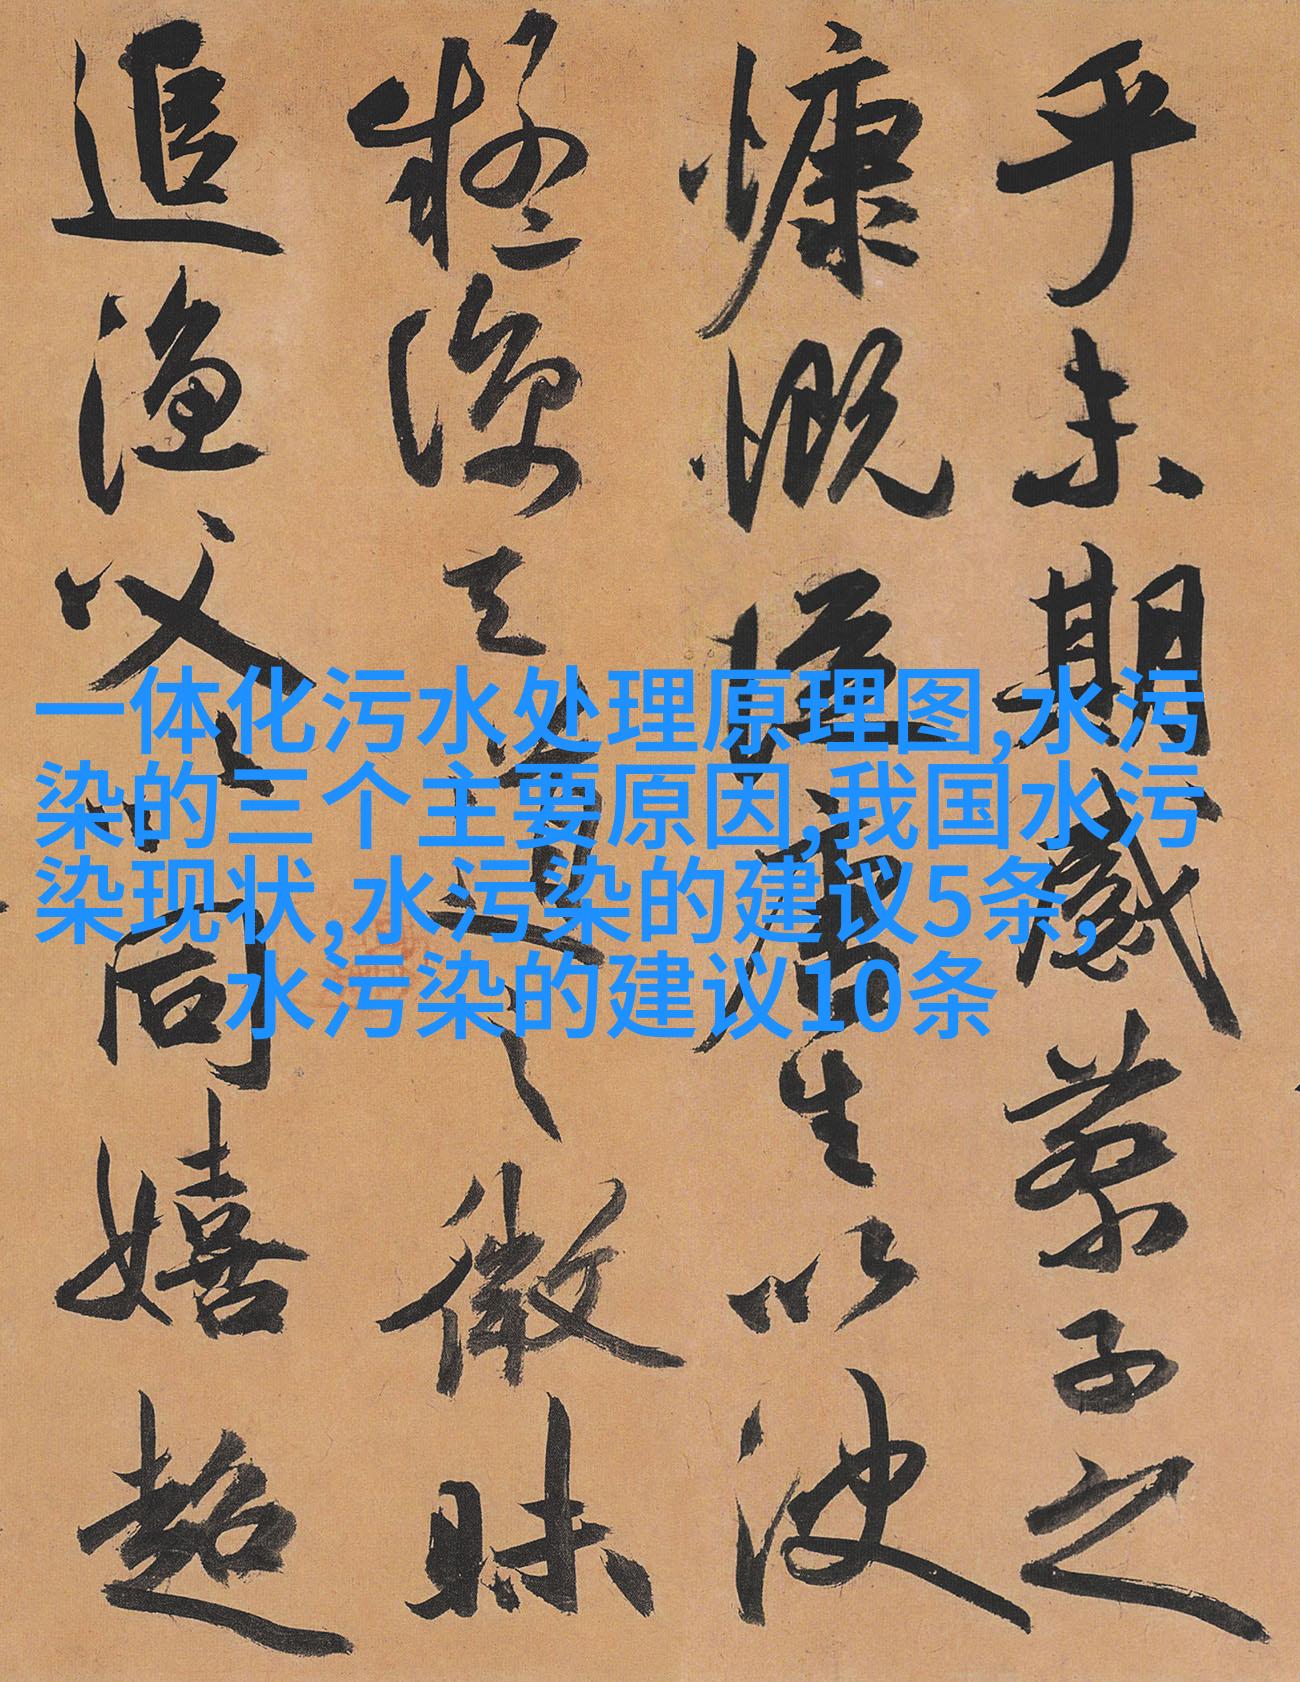 乎未期感蔡子之
慷慨從唐生以決
疑諒天道之微昧
追漁父以同嬉超
一体化污水处理原理图,水污
染的三个主要原因,我国水污
染现状,水污染的建议5条,
水污染的建议10条